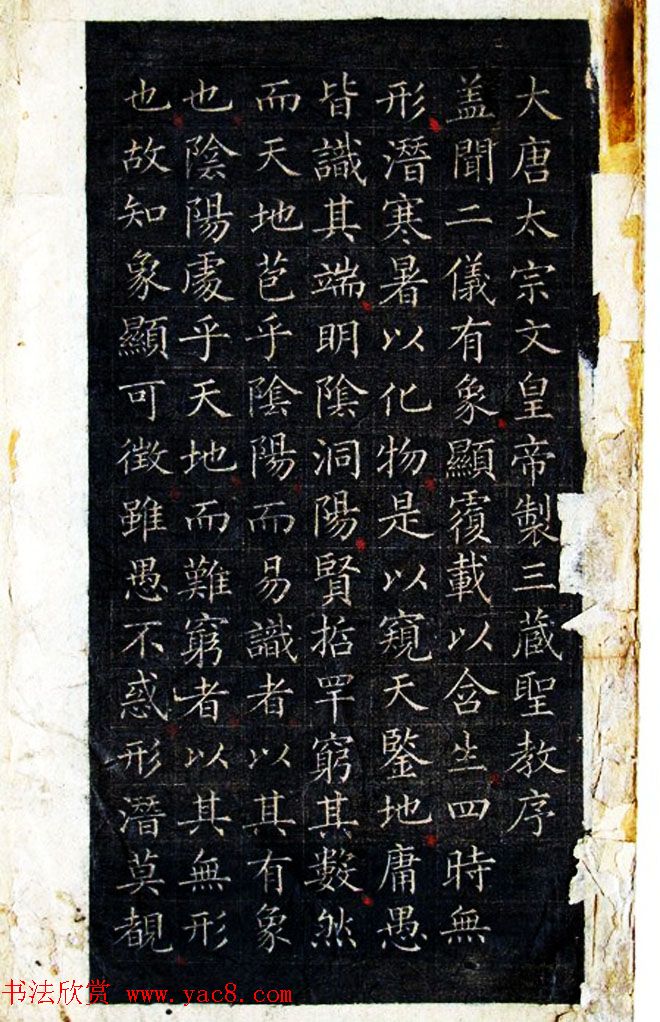 大唐太宗文皇帝製三藏聖教序
盖聞二儀有象顯覆載以含生四時無
形潛寒暑以化物是以窺天鑒地庸愚
皆識其端明陰洞陽賢哲罕窮其數然
而天地苞乎陰陽而易識者以其有象
也陰陽處乎天地而難窮者以其無形
也故知象顯可徵雖愚不惑形潛莫覩
书法欣赏 www.yac8.com